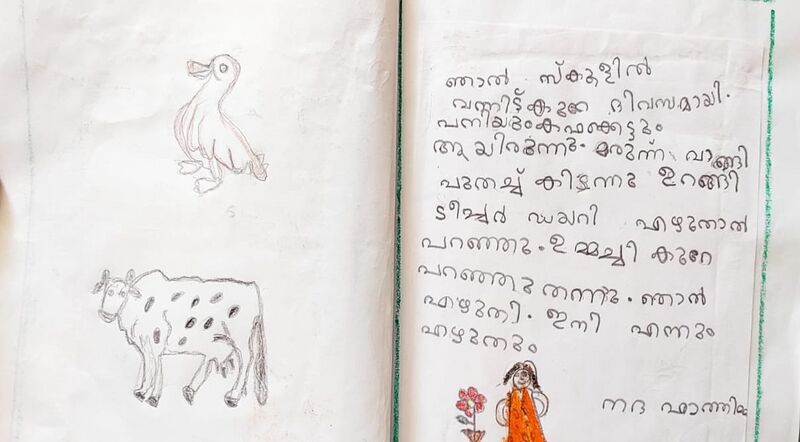 ഞാൻ സ്കൂളിൽ
വന്നിട്ട് കുറേ ദിവസമായി.
പനിയുംകഫക്കെട്ടും
ആയിരുന്നു. മരുന്ന് വാങ്ങി
പുതച്ച് കിടന്നു ഉറങ്ങി
ടീച്ചർ ഡയറി എഴുതാൻ
പറഞ്ഞു. ഉമ്മച്ചി കുറേ
പറഞ്ഞു തന്നു. ഞാൻ
എഴുതി. ഇനി എന്നും
എഴുതും
നദ ഫാത്തിമ